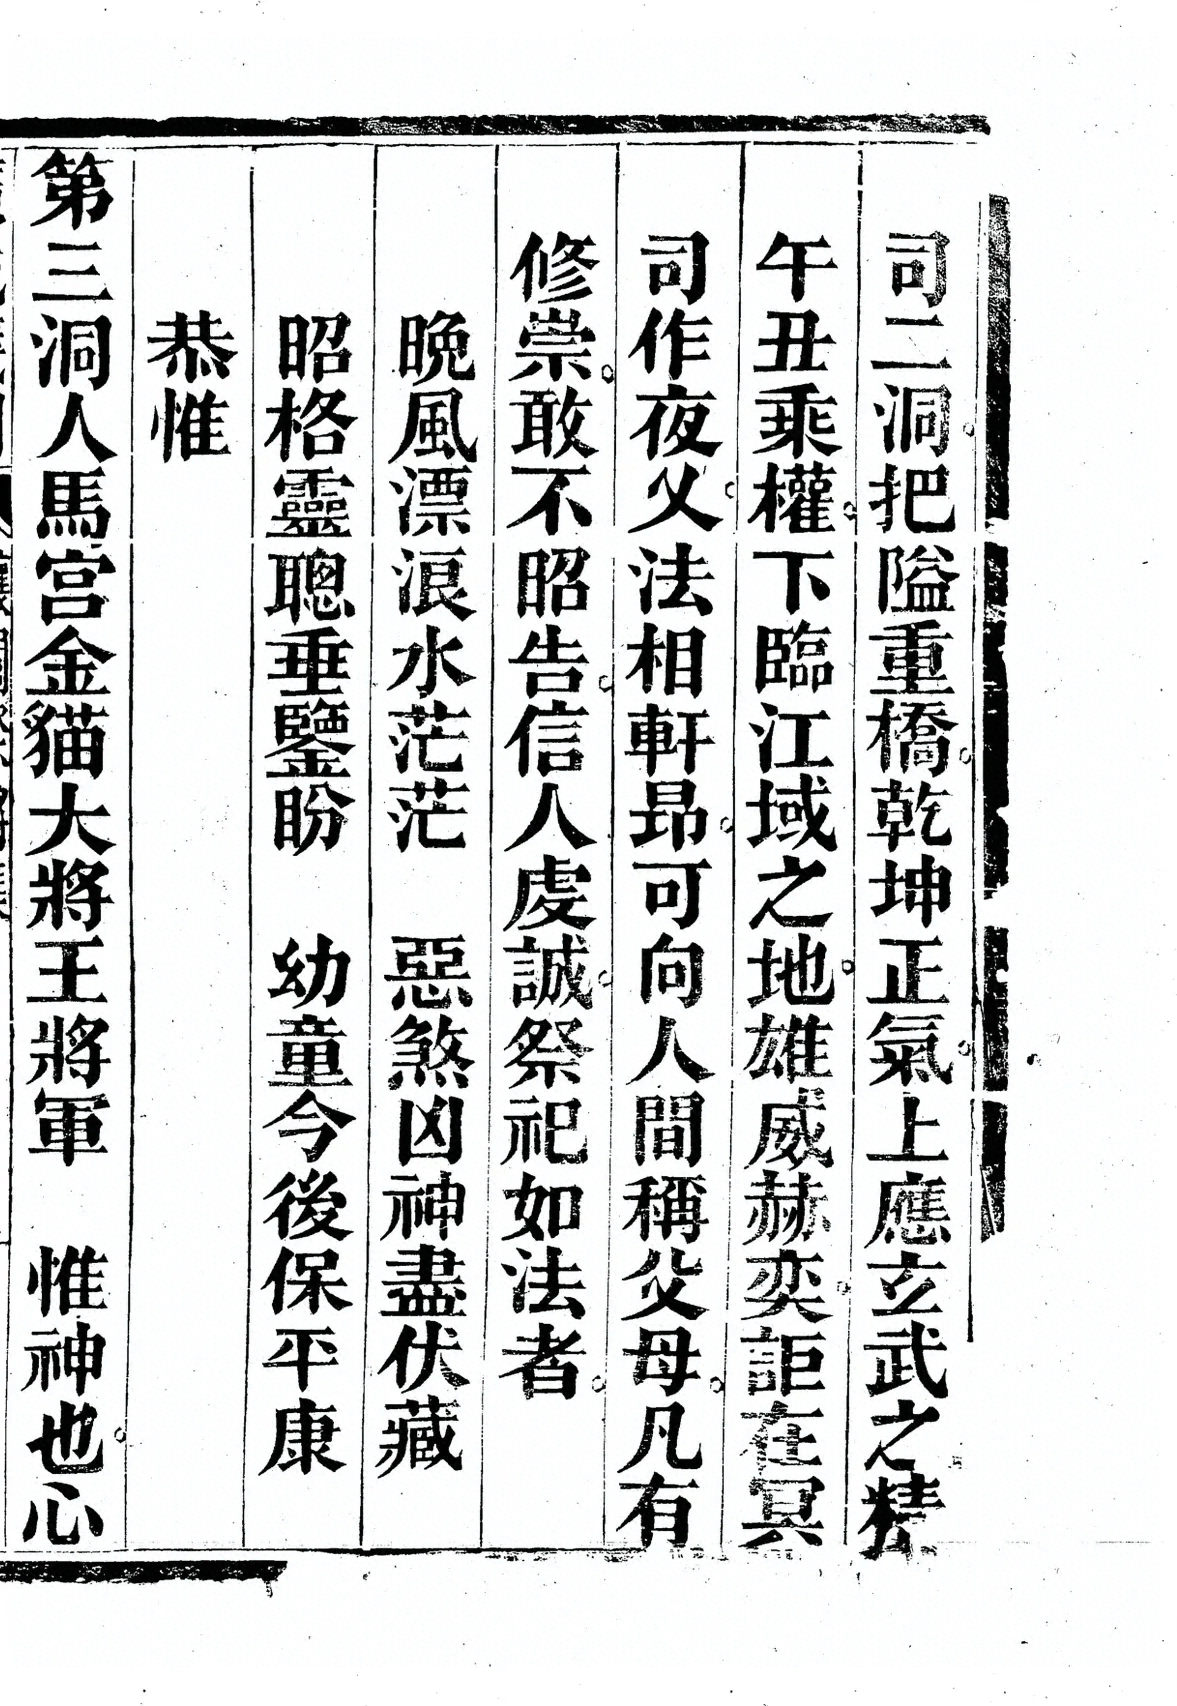 司二洞把隘重橋乾坤正氣上應玄武之精
午丑乘權下臨江域之地雄威赫奕詎在冥
司作夜父法相軒昂可向人間稱父母凡有
修崇敢不昭告信人虔誠祭祀如法者
晩風漂浪水茫茫　惡煞凶神盡伏藏
昭格靈聰垂鑒盼　幼童今後保平康
恭惟
第三洞人馬宮金貓大將王將軍　惟神也心